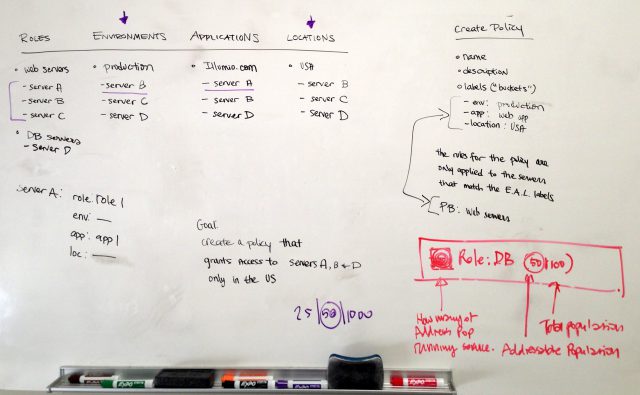 ROLES
• web servers
- server A
- server B
- server C
• DB servers
- server D
ENVIRONMENTS
• production
- server B
- server C
- server D
APPLICATIONS
• Illumio.com
- server A
- server B
- server D
LOCATIONS
• USA
- server B
- server C
- server D
Server A:
role: role 1
env: __
app: app 1
loc: __
Goal:
create a policy that
grants access to servers A, B + D
only in the US
25 | 50 | 1000
CREATE POLICY
• name
• description
• labels ("buckets")
- env: production
- app: web app
- location: USA
the rules for the policy are
only applied to the servers
that match the E.A.L. labels
PB: Web servers
Role: DB (50/100)
How many of
Address Pop
running service.
Addressable Population
Total population
EXPO
EXPO